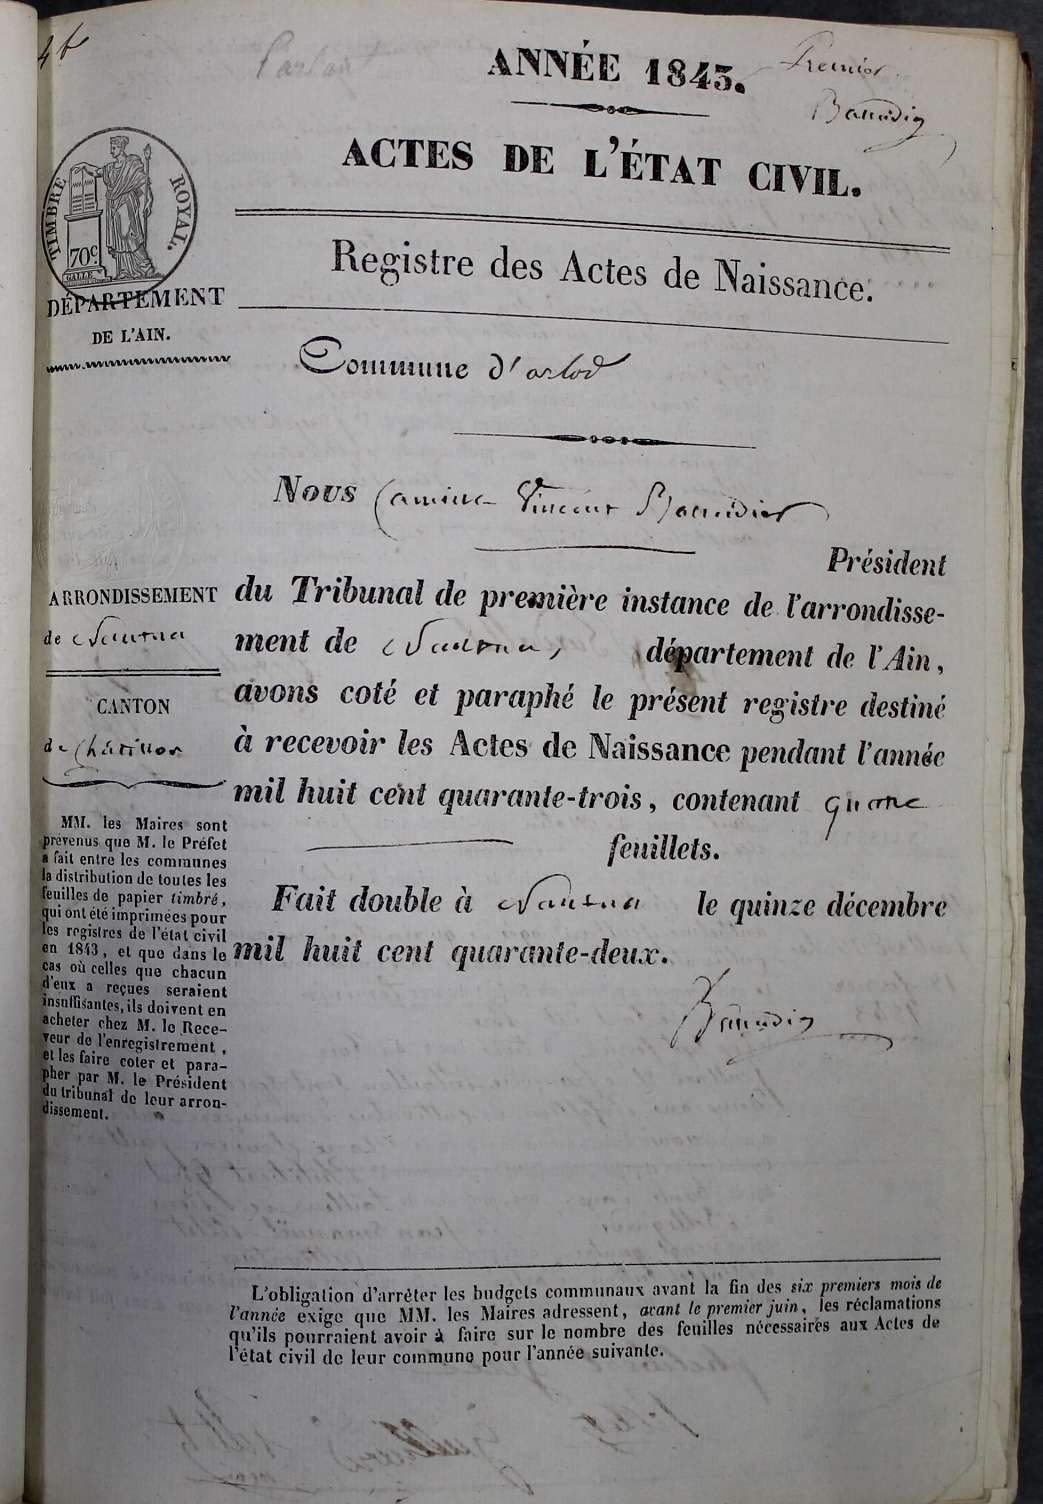 ANNÉE 1843.
Premier
ACTES DE L'ÉTAT CIVIL.
TIMBRE ROYAL.
70c.
Registre des Actes de Naissance.
DÉPARTEMENT
DE L'AIN.
Commune d'arlod
Nous Camille Vincent Baudier
Président
du Tribunal de première instance de l'arrondisse-
ment de Nantua, département de l'Ain,
avons coté et paraphé le présent registre destiné
à recevoir les Actes de Naissance pendant l'année
mil huit cent quarante-trois, contenant quatre
feuillets.
Fait double à Nantua le quinze décembre
mil huit cent quarante-deux.
ARRONDISSEMENT
de Nantua
CANTON
de Chatillon
MM. les Maires sont
prévenus que M. le Préfet
a fait entre les communes
la distribution de toutes les
feuilles de papier timbré,
qui ont été imprimées pour
les registres de l'état civil
en 1843, et que dans le
cas où celles que chacun
d'eux a reçues seraient
insuffisantes, ils doivent en
acheter chez M. le Rece-
veur de l'enregistrement,
et les faire coter et para-
pher par M. le Président
du tribunal de leur arron-
dissement.
L'obligation d'arrêter les budgets communaux avant la fin des six premiers mois de
l'année exige que MM. les Maires adressent, avant le premier juin, les réclamations
qu'ils pourraient avoir à faire sur le nombre des feuilles nécessaires aux Actes de
l'état civil de leur commune pour l'année suivante.